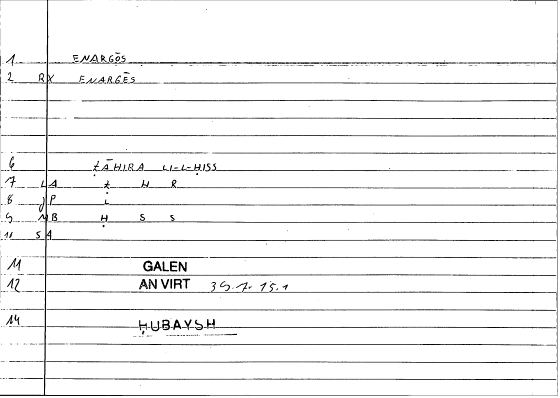 1 ENARGŌS
2 RX ENARGĒS
6 ẒĀHIRA LI-L-ḤISS
7 LA Ẓ H R
8 JP L
9 MB Ḥ S S
10 SA
11 GALEN
12 AN VIRT
14 ḤUBAYSH